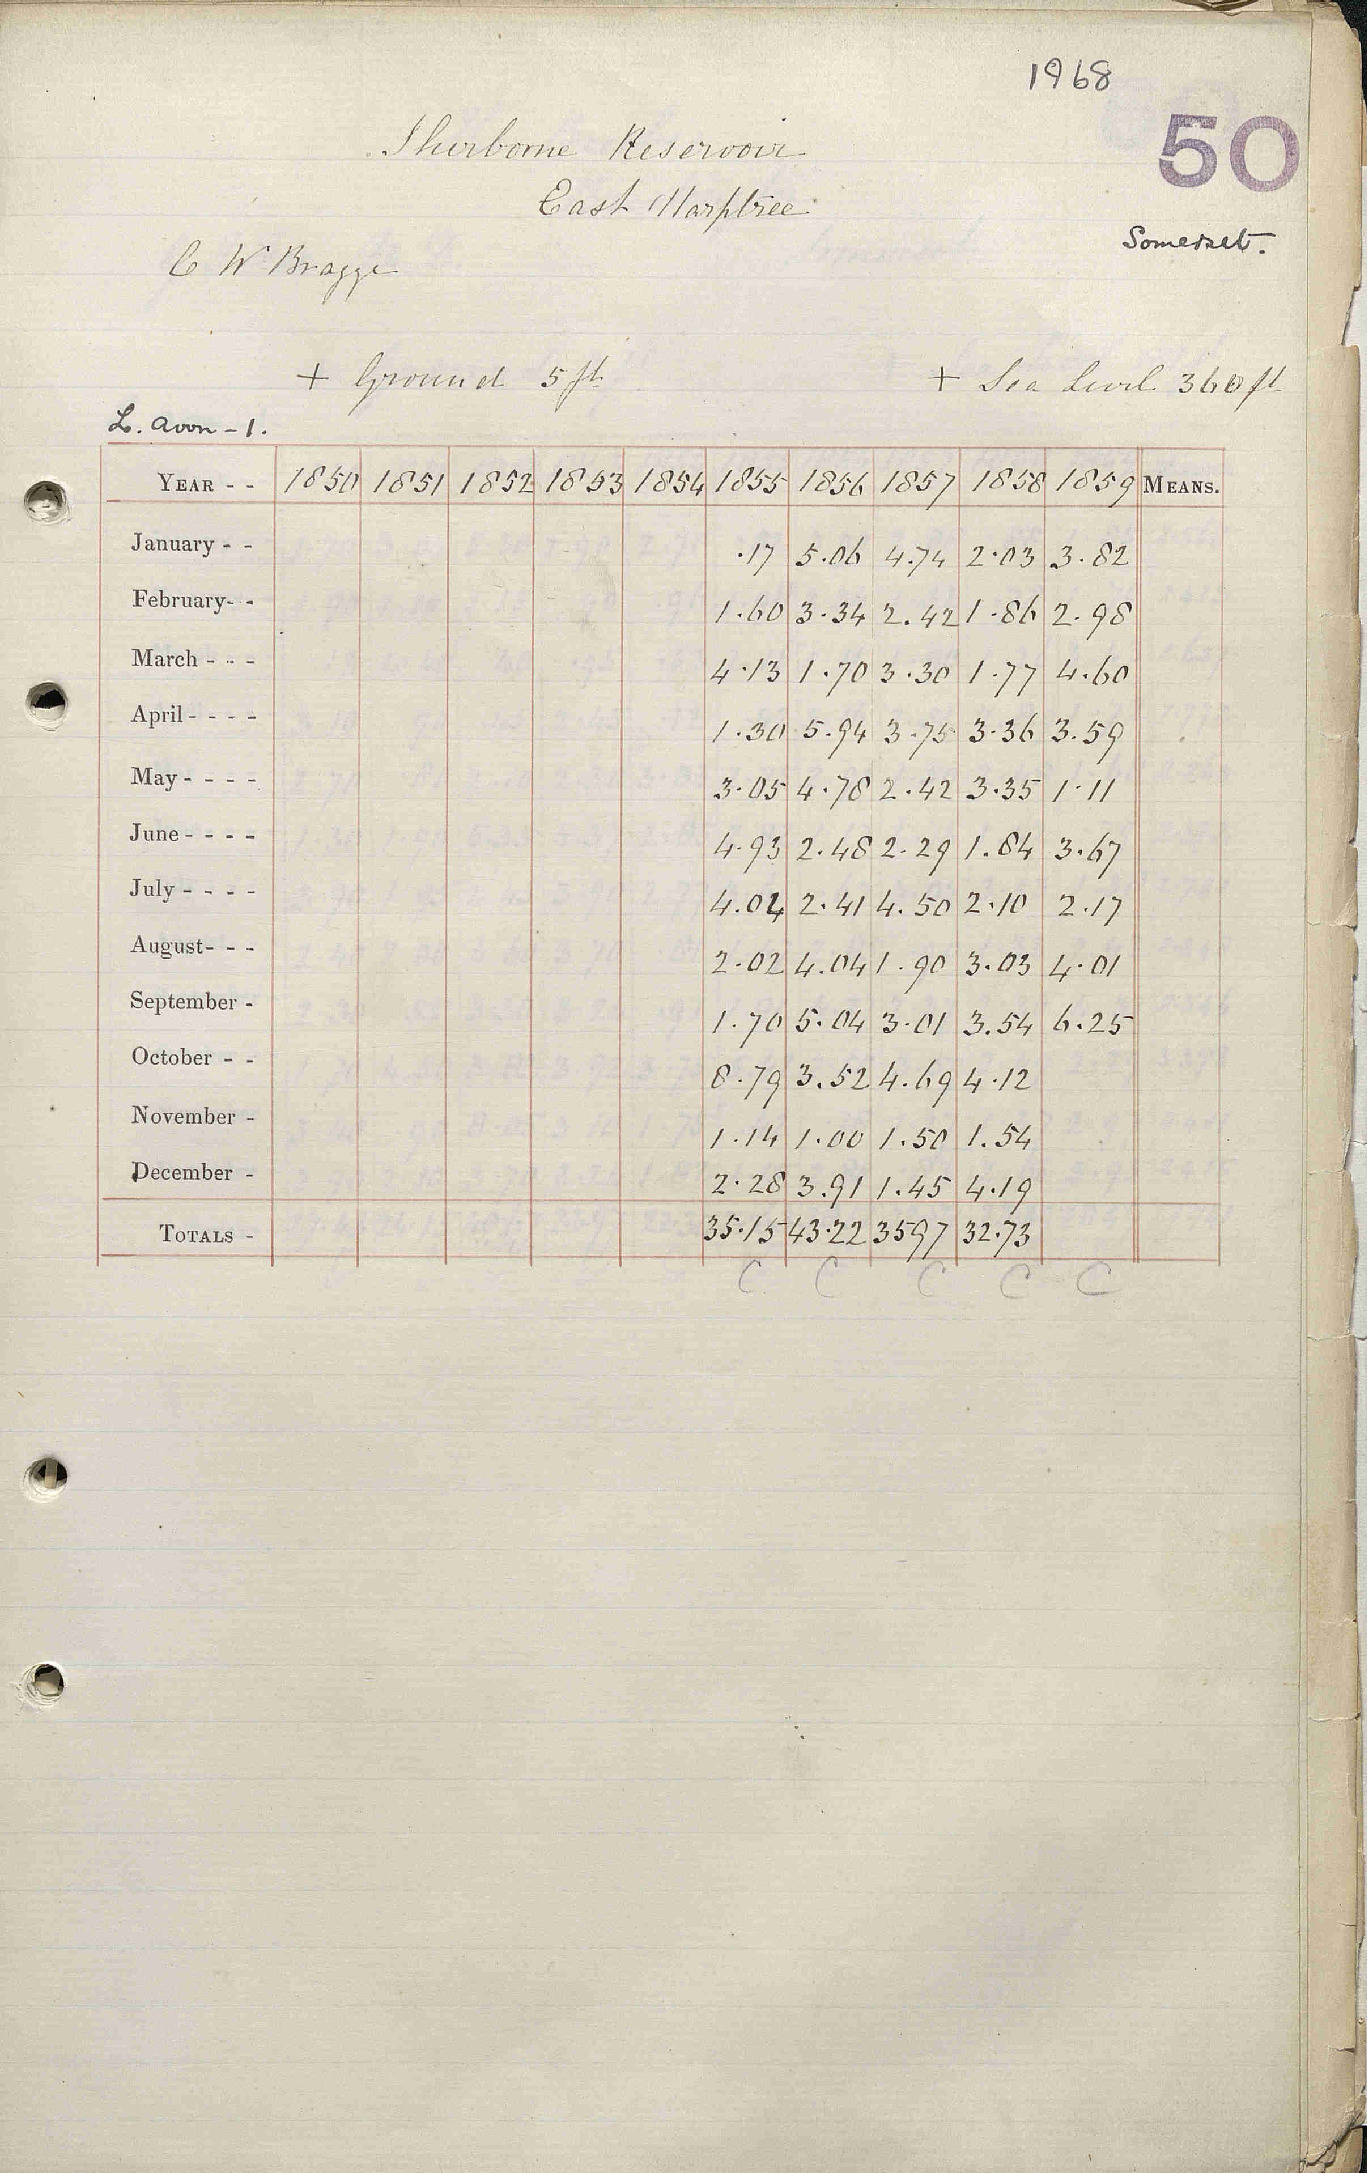 1968
50
Sherborne Reservoir
East Harptree
Somerset.
C W Bragge
+ Ground 5 ft + Sea Level 360 ft
L. Avon - 1.
YEAR - - 1850 1851 1852 1853 1854 1855 1856 1857 1858 1859 MEANS.
January - - .17 5.06 4.74 2.03 3.82
February - - 1.60 3.34 2.42 1.86 2.98
March - - - 4.13 1.70 3.30 1.77 4.60
April - - - - 1.30 5.94 3.75 3.36 3.59
May - - - - 3.05 4.78 2.42 3.35 1.11
June - - - - 4.93 2.48 2.29 1.84 3.67
July - - - - 4.04 2.41 4.50 2.10 2.17
August - - - 2.02 4.04 1.90 3.03 4.01
September - 1.70 5.04 3.01 3.54 6.25
October - - 8.79 3.52 4.69 4.12
November - 1.14 1.00 1.50 1.54
December - 2.28 3.91 1.45 4.19
TOTALS - 35.15 43.22 3597 32.73
C C C C C